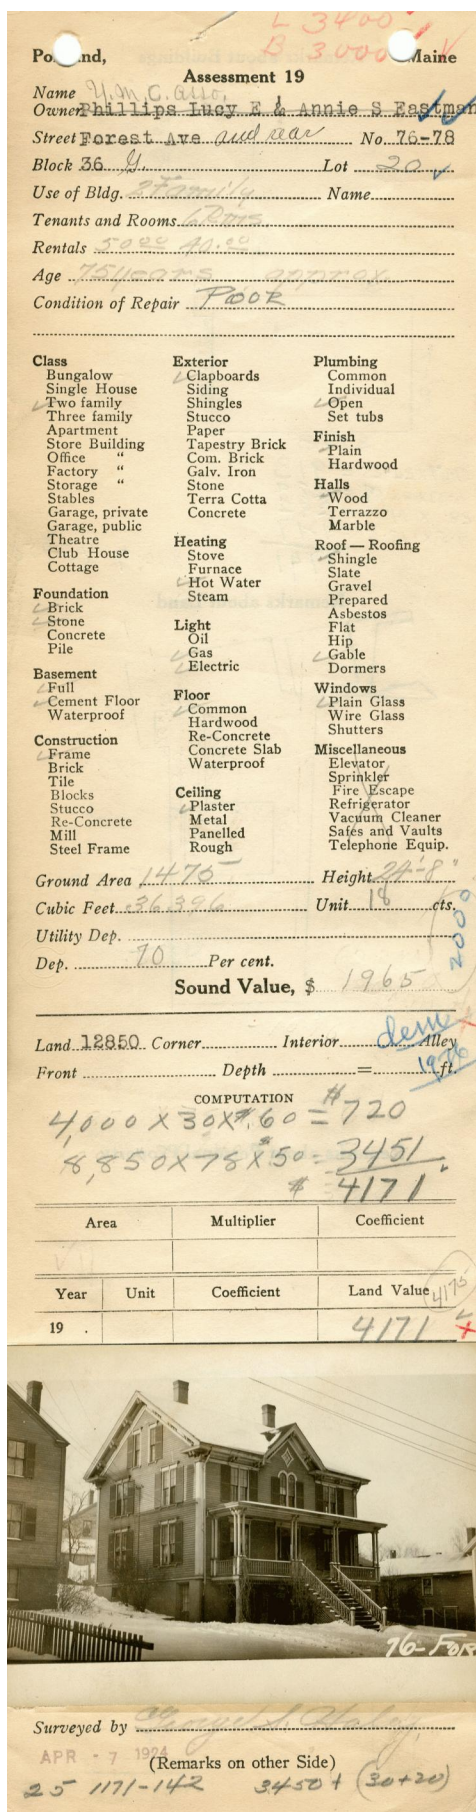 L 3400
B 3000
Portland, Maine
Assessment 19
Name Y.M.C. Asso.
Owner Phillips Lucy E & Annie S Eastman
Street Forest Ave and rear No. 76-78
Block 36 G. Lot 20
Use of Bldg. 2 Family Name
Tenants and Rooms 6 Rms
Rentals 50.00 40.00
Age 75 years approx.
Condition of Repair Poor
Class
Bungalow
Single House
Two family
Three family
Apartment
Store Building
Office "
Factory "
Storage "
Stables
Garage, private
Garage, public
Theatre
Club House
Cottage
Foundation
Brick
Stone
Concrete
Pile
Basement
Full
Cement Floor
Waterproof
Construction
Frame
Brick
Tile
Blocks
Stucco
Re-Concrete
Mill
Steel Frame
Exterior
Clapboards
Siding
Shingles
Stucco
Paper
Tapestry Brick
Com. Brick
Galv. Iron
Stone
Terra Cotta
Concrete
Heating
Stove
Furnace
Hot Water
Steam
Light
Oil
Gas
Electric
Floor
Common
Hardwood
Re-Concrete
Concrete Slab
Waterproof
Ceiling
Plaster
Metal
Panelled
Rough
Plumbing
Common
Individual
Open
Set tubs
Finish
Plain
Hardwood
Halls
Wood
Terrazzo
Marble
Roof — Roofing
Shingle
Slate
Gravel
Prepared
Asbestos
Flat
Hip
Gable
Dormers
Windows
Plain Glass
Wire Glass
Shutters
Miscellaneous
Elevator
Sprinkler
Fire Escape
Refrigerator
Vacuum Cleaner
Safes and Vaults
Telephone Equip.
Ground Area 1475 Height 24'-8"
Cubic Feet 36396 Unit 18 cts.
Utility Dep.
2000
Dep. 70 Per cent.
Sound Value, $ 1965
Land 12850 Corner Interior Alley
dem
1926
Front Depth = ft.
COMPUTATION
4,000 X 30 X $.60 = $720
8,850 X 78 X $.50 = 3451
$ 4171
Area Multiplier Coefficient
Year Unit Coefficient Land Value 4175
19 . 4171
76-FOR
Surveyed by George S. Haley
APR - 7 1924
(Remarks on other Side)
25 1171-142 3450 + (30+20)